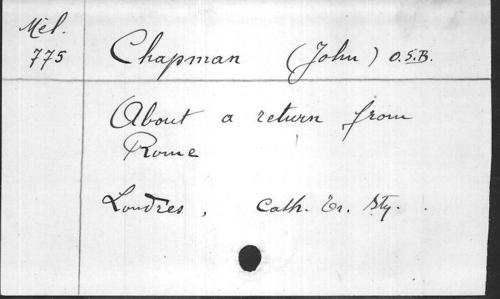 Mél.
775
Chapman (John) O.S.B.
About a return from
Rome
Londres, Cath. Tr. Sty.